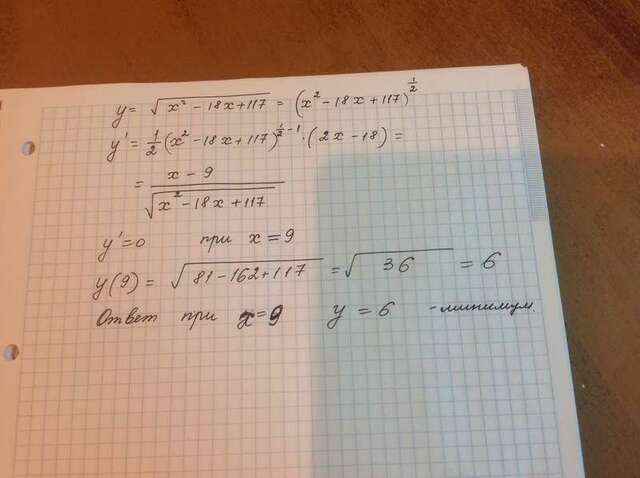 y = √(x² - 18x + 117) = (x² - 18x + 117)^(1/2)
y' = 1/2 (x² - 18x + 117)^(1/2 - 1) · (2x - 18) =
= (x - 9)/√(x² - 18x + 117)
y' = 0 при x = 9
y(9) = √(81 - 162 + 117) = √36 = 6
Ответ при x = 9 y = 6 - минимум.